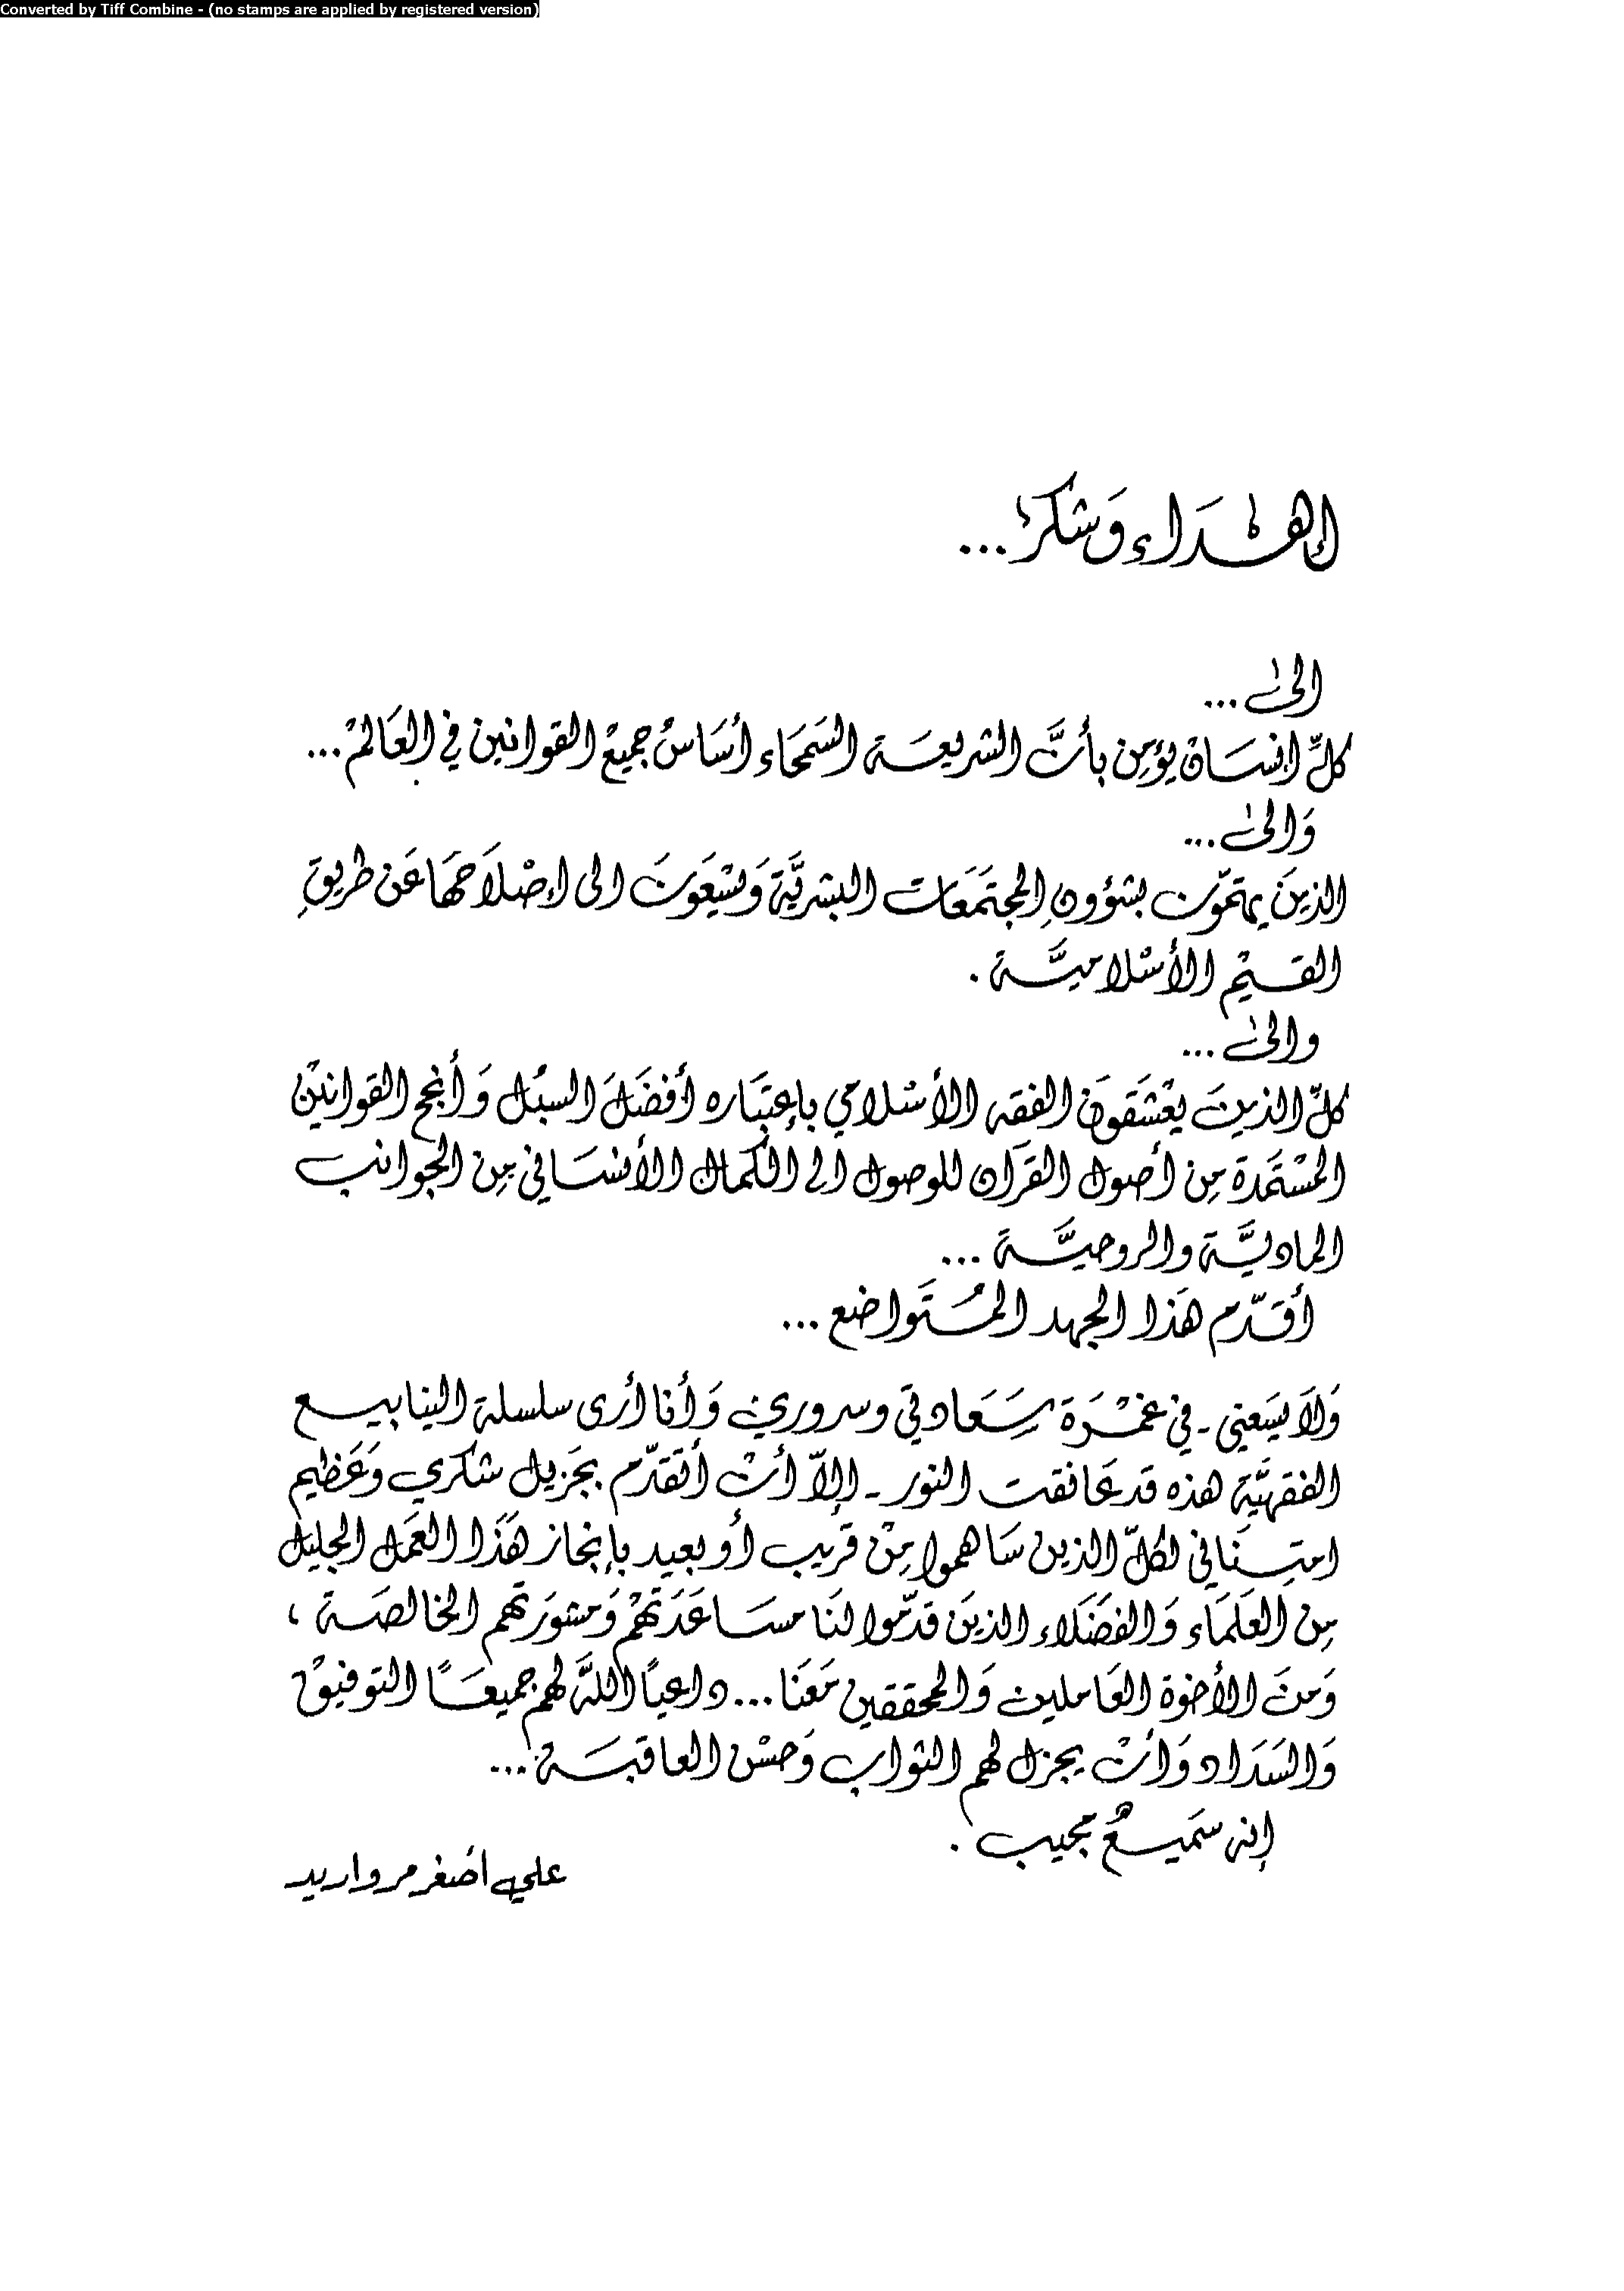 Converted by Tiff Combine - (no stamps are applied by registered version)
إهْدَاء وَشكرْ...
الىٰ ...
كلِّ انسَان يؤمِن بأنَّ الشريعَة السَمحَاء أسَاسُ جميعْ القوانين في العَالمْ...
وَالىٰ ...
الذينَ يهتمّون بشؤونِ المجتمَعَات البشريَّة وَيسْعَونَ الى إصْلاَحهَا عَن طريقِ
القيمْ الأسْلاميَّة .
والىٰ ...
كلِّ الذينَ يعْشَقونَ الفقه الأسْلامي بإعتبَاره أفضَلَ السبُل وَأنجح القوانيْن
المسْتَمدة مِن أصول القرآن للوصول الى الكمال الأنسَاني مِن الجوانب
الماديَّة والروحيَّة ...
أقَدّم هَذا الجهد المُتَواضع ...
وَلاَ يسَعني - في غمْرَة سَعَادتي وسروري وَأنا أرى سلسلة الينابيع
الفقهيَّة هذه قد عَانقت النور - إلاّ أنْ أتقَدّم بجَزيل شكري وَعَظيم
امتِنَاني لكلّ الذين سَاهموا مِنْ قريب أو بعيد بإنجاز هَذَا العَمل الجليل
مِن العلمَاء وَالفضَلاء الذينَ قدّموا لنَا مسَاعَدَتهمْ وَمشوَرَتهم الخالصَة ،
وَمنَ الأخوَة العَاملين وَالمحققين مَعَنَا ... داعياً اللهَ لهم جميعَاً التوفيقْ
وَالسَدَاد وَأنْ يجزل لهم الثواب وَحسْن العاقبَة ...
إنه سَميعٌ مجيب .
علي أصْغر مرواريد